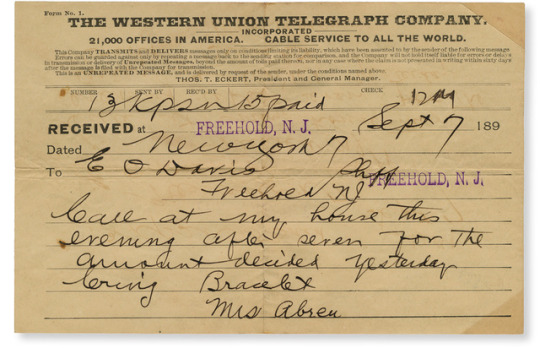 Form No. 1.
THE WESTERN UNION TELEGRAPH COMPANY.
INCORPORATED
21,000 OFFICES IN AMERICA. CABLE SERVICE TO ALL THE WORLD.
This Company TRANSMITS and DELIVERS messages only on conditions limiting its liability, which have been assented to by the sender of the following message
Errors can be guarded against only by repeating a message back to the sending station for comparison, and the Company will not hold itself liable for errors or delays
in transmission or delivery of Unrepeated Messages, beyond the amount of tolls paid thereon, nor in any case where the claim is not presented in writing within sixty days
after the message is filed with the Company for transmission.
This is an UNREPEATED MESSAGE, and is delivered by request of the sender, under the conditions named above.
THOS. T. ECKERT, President and General Manager.
NUMBER SENT BY REC'D BY CHECK
15 paid
RECEIVED at FREEHOLD, N. J. Sept 7 189
Dated New York 7
To E O Davis
Freehold NJ FREEHOLD, N. J.
Call at my house this
evening after seven for the
amount decided yesterday
bring Bracelet
Mrs Abreu